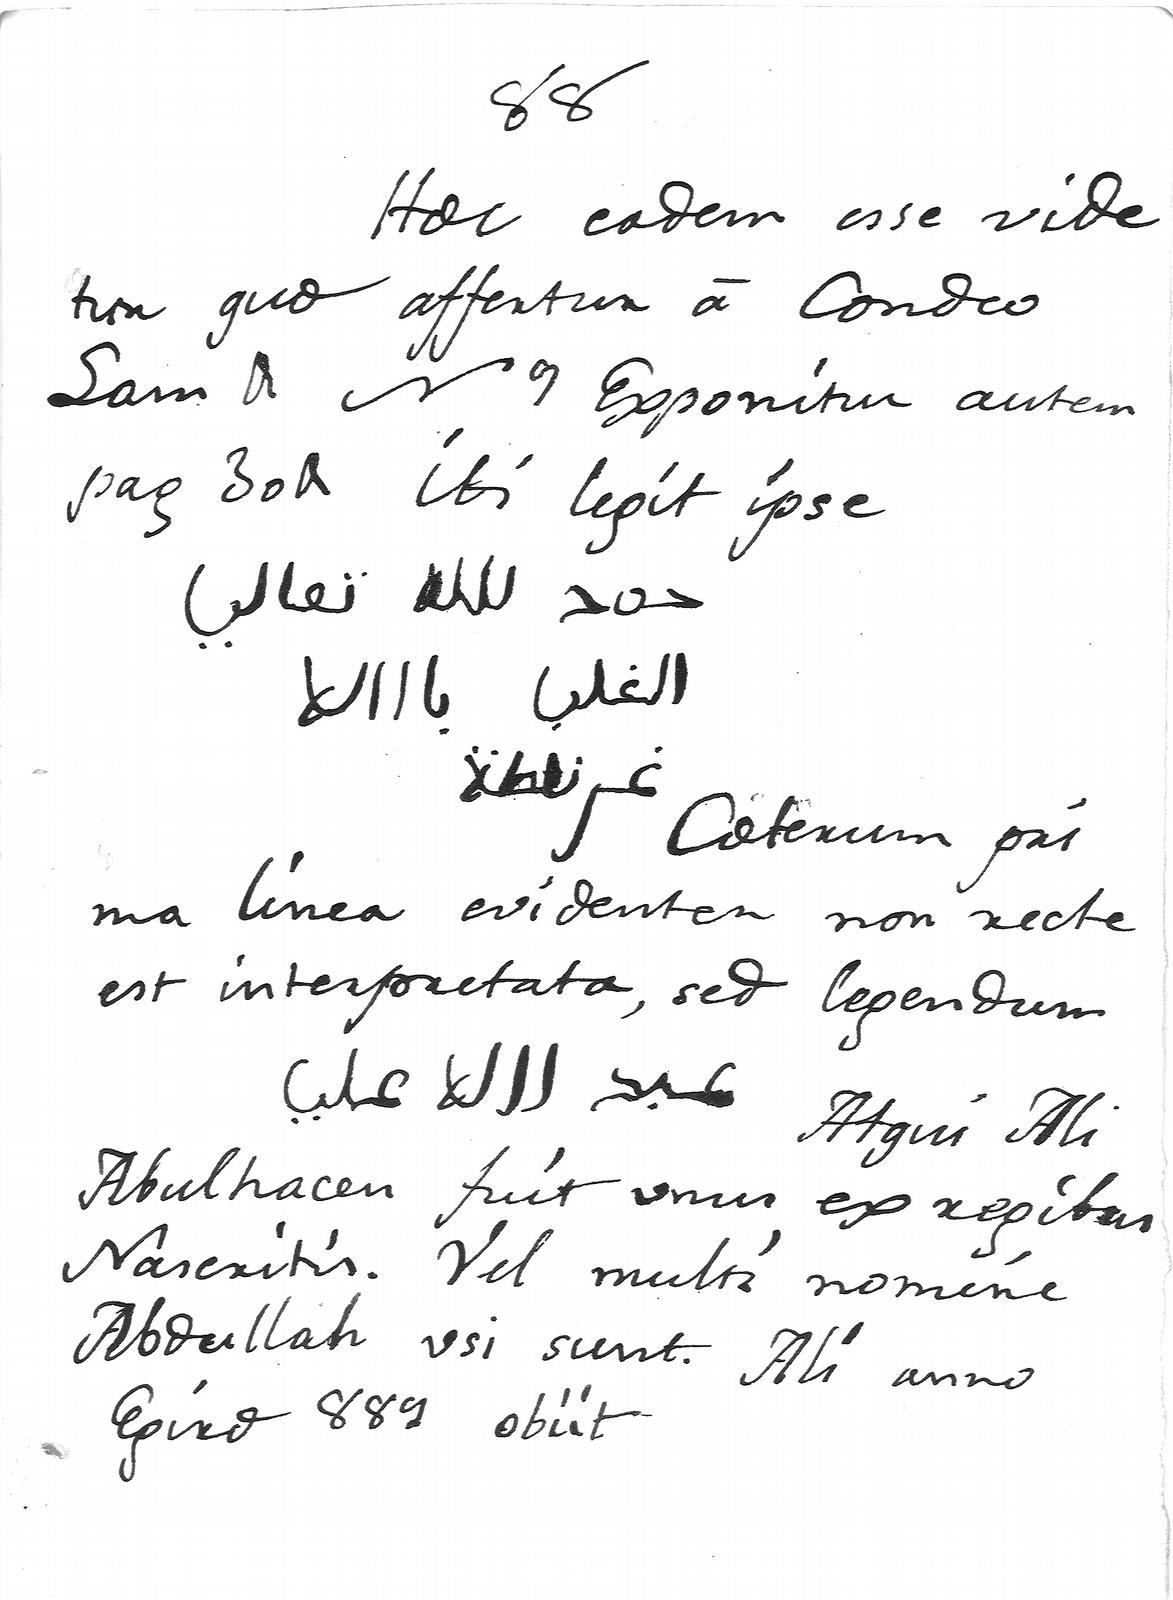 88
Hæc eadem esse vide
tur quæ affertur ā Condeo
Lam N 9 Exponitur autem
pag ibi legit ipse
حمد لله تعالي
الغلب با االا
غرناطة
Cæterum pri
ma linea evidenter non recte
est interpretata, sed legendum
عبد االا علي
Atqui Ali
Abulhacen fuit vnus ex regibus
Naseritis. Vel multi nomine
Abdullah vsi sunt. Ali anno
Egiræ 889 obiit